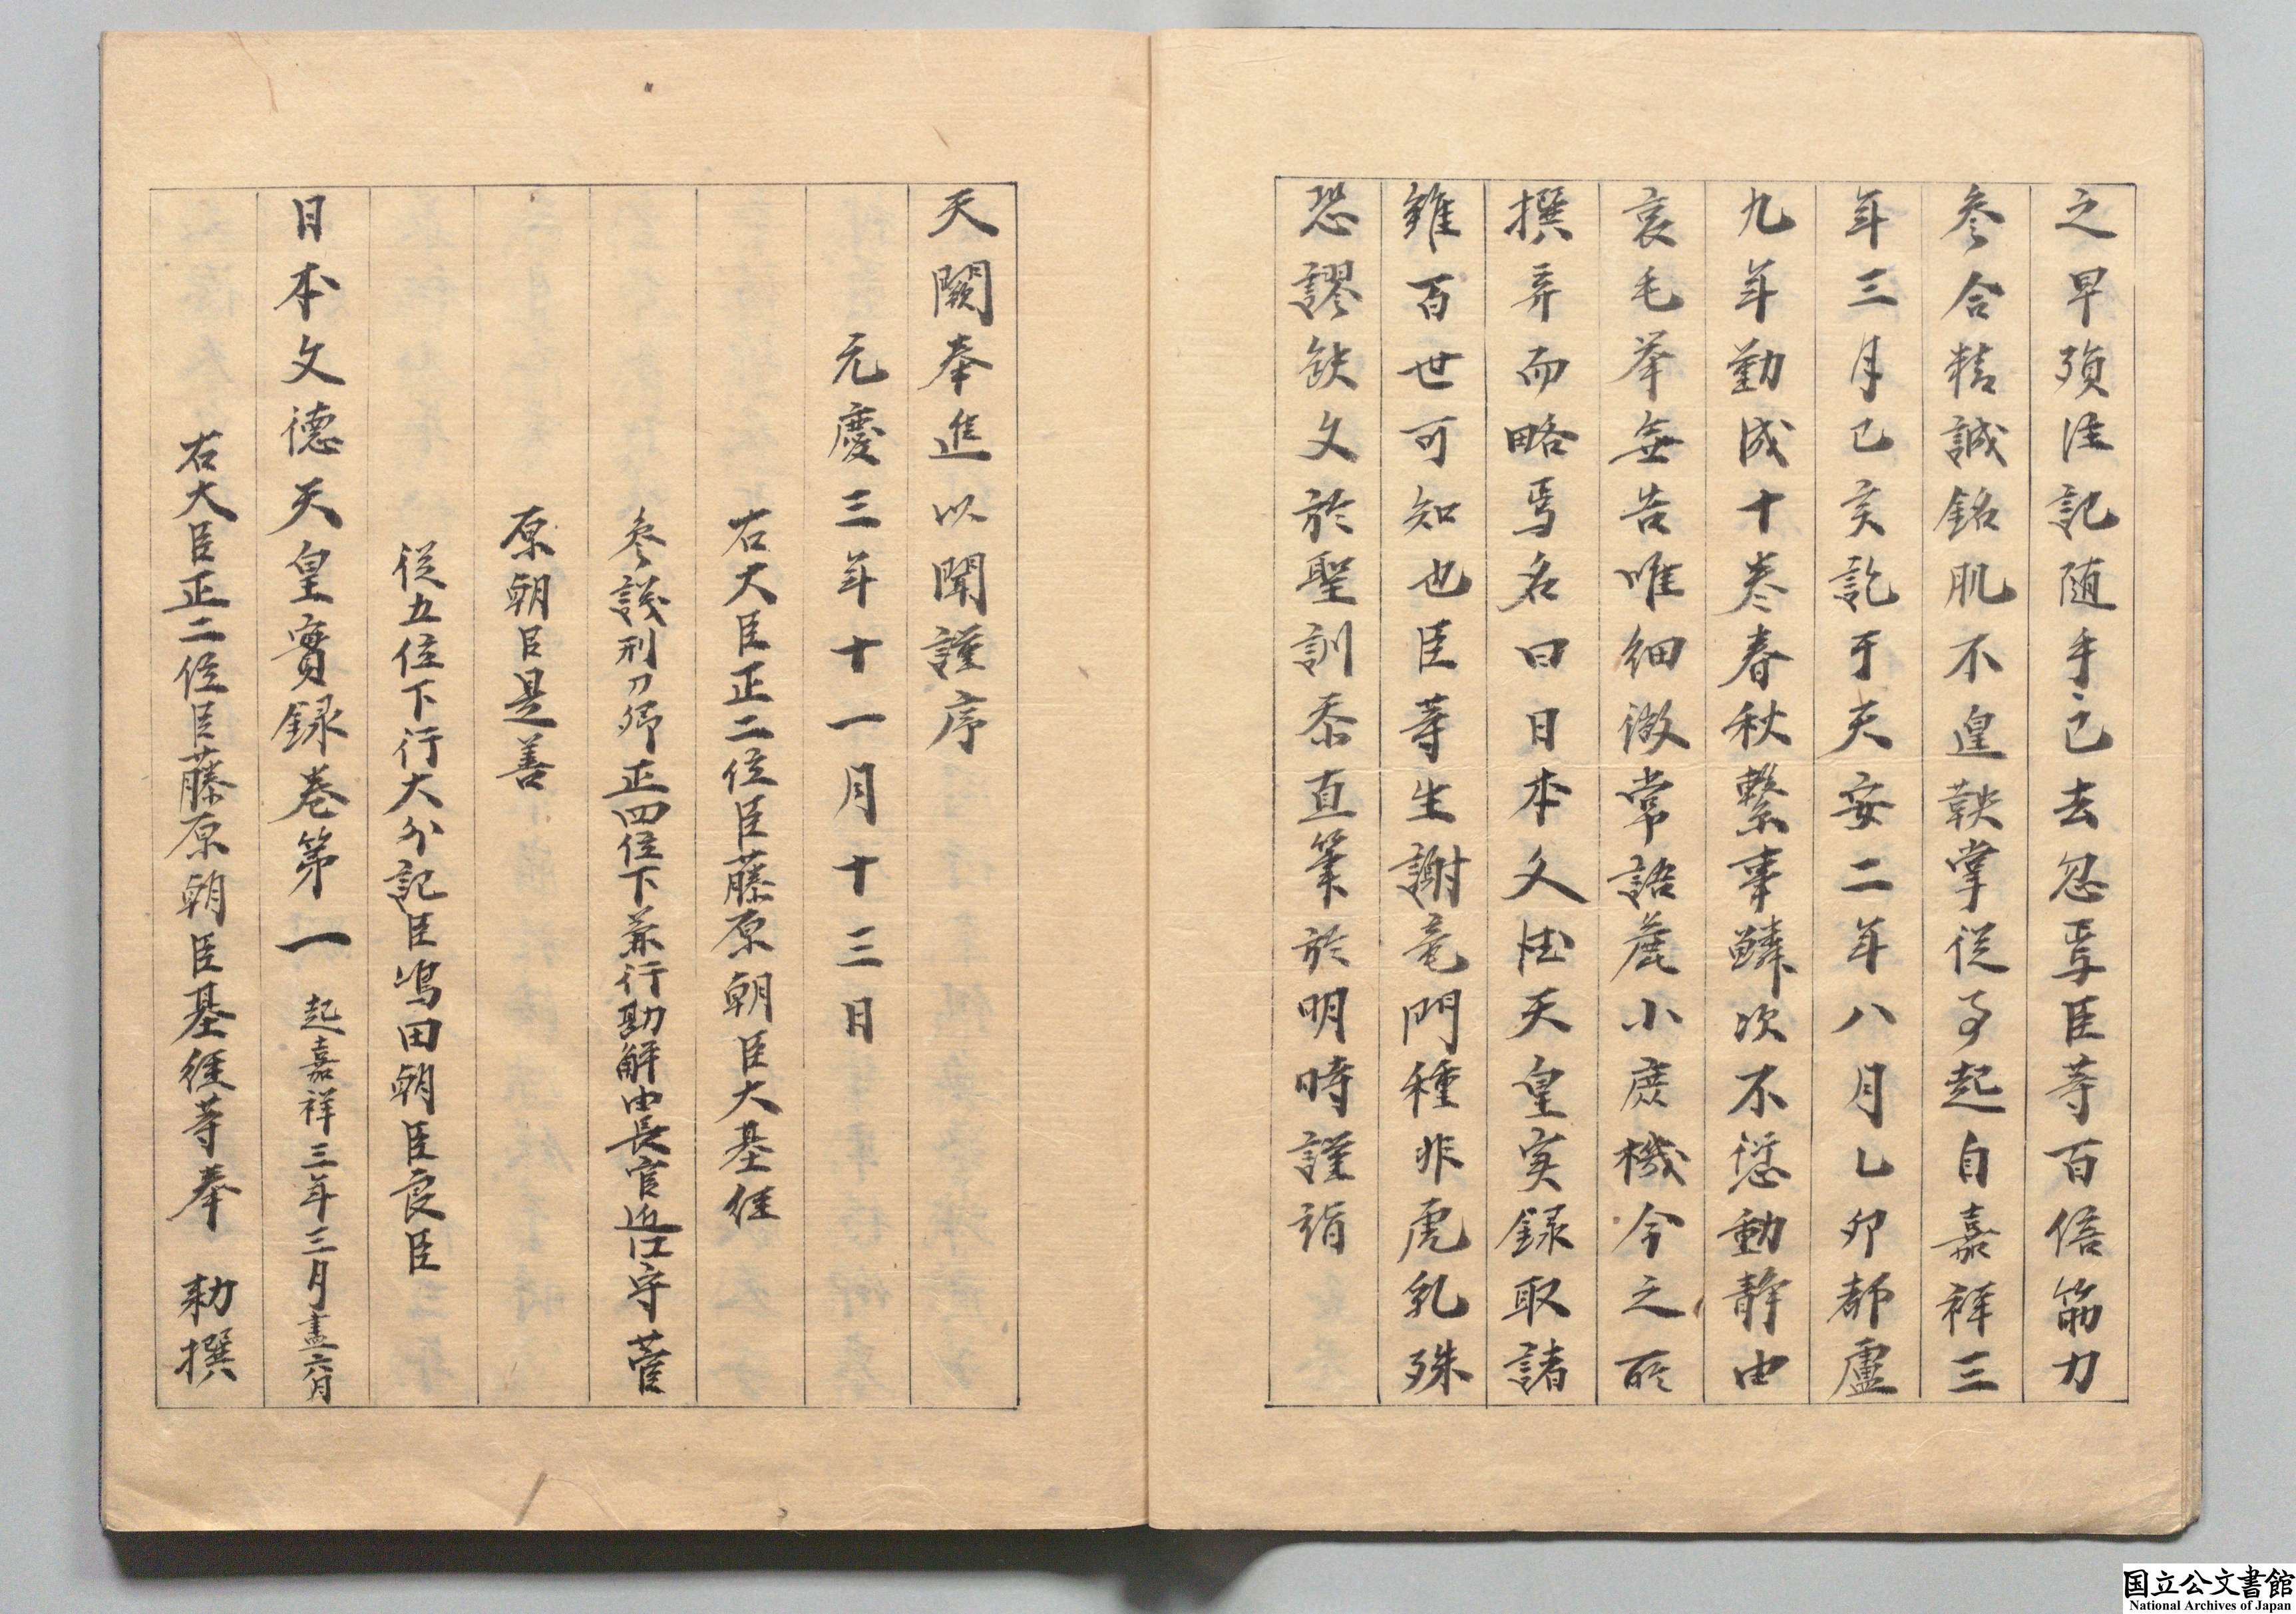 之早殞注記随手已去忍焉臣等百倍筋力
参合精誠銘肌不遑鞅掌従事起自嘉祥三
年三月己亥訖于天安二年八月乙卯都盧
九年勤成十巻春秋繋事鱗次不愆動静由
衷毛挙無告唯細微常語麁小庶機今之所
撰弃而略焉名曰日本文徳天皇実録取諸
雖百世可知也臣等生謝竜門種非虎乳殊
恐謬欽文於聖訓忝直筆於明時謹詣
天闕奉進以聞謹序
元慶三年十一月十三日
右大臣正二位臣藤原朝臣大基経
参議刑刀卿正四位下兼行勘解由長官近江守菅
原朝臣是善
従五位下行大外記臣嶋田朝臣良臣
日本文徳天皇實録巻第一 起嘉祥三年三月盡六月
右大臣正二位臣藤原朝臣基経等奉 勅撰
国立公文書館
National Archives of Japan